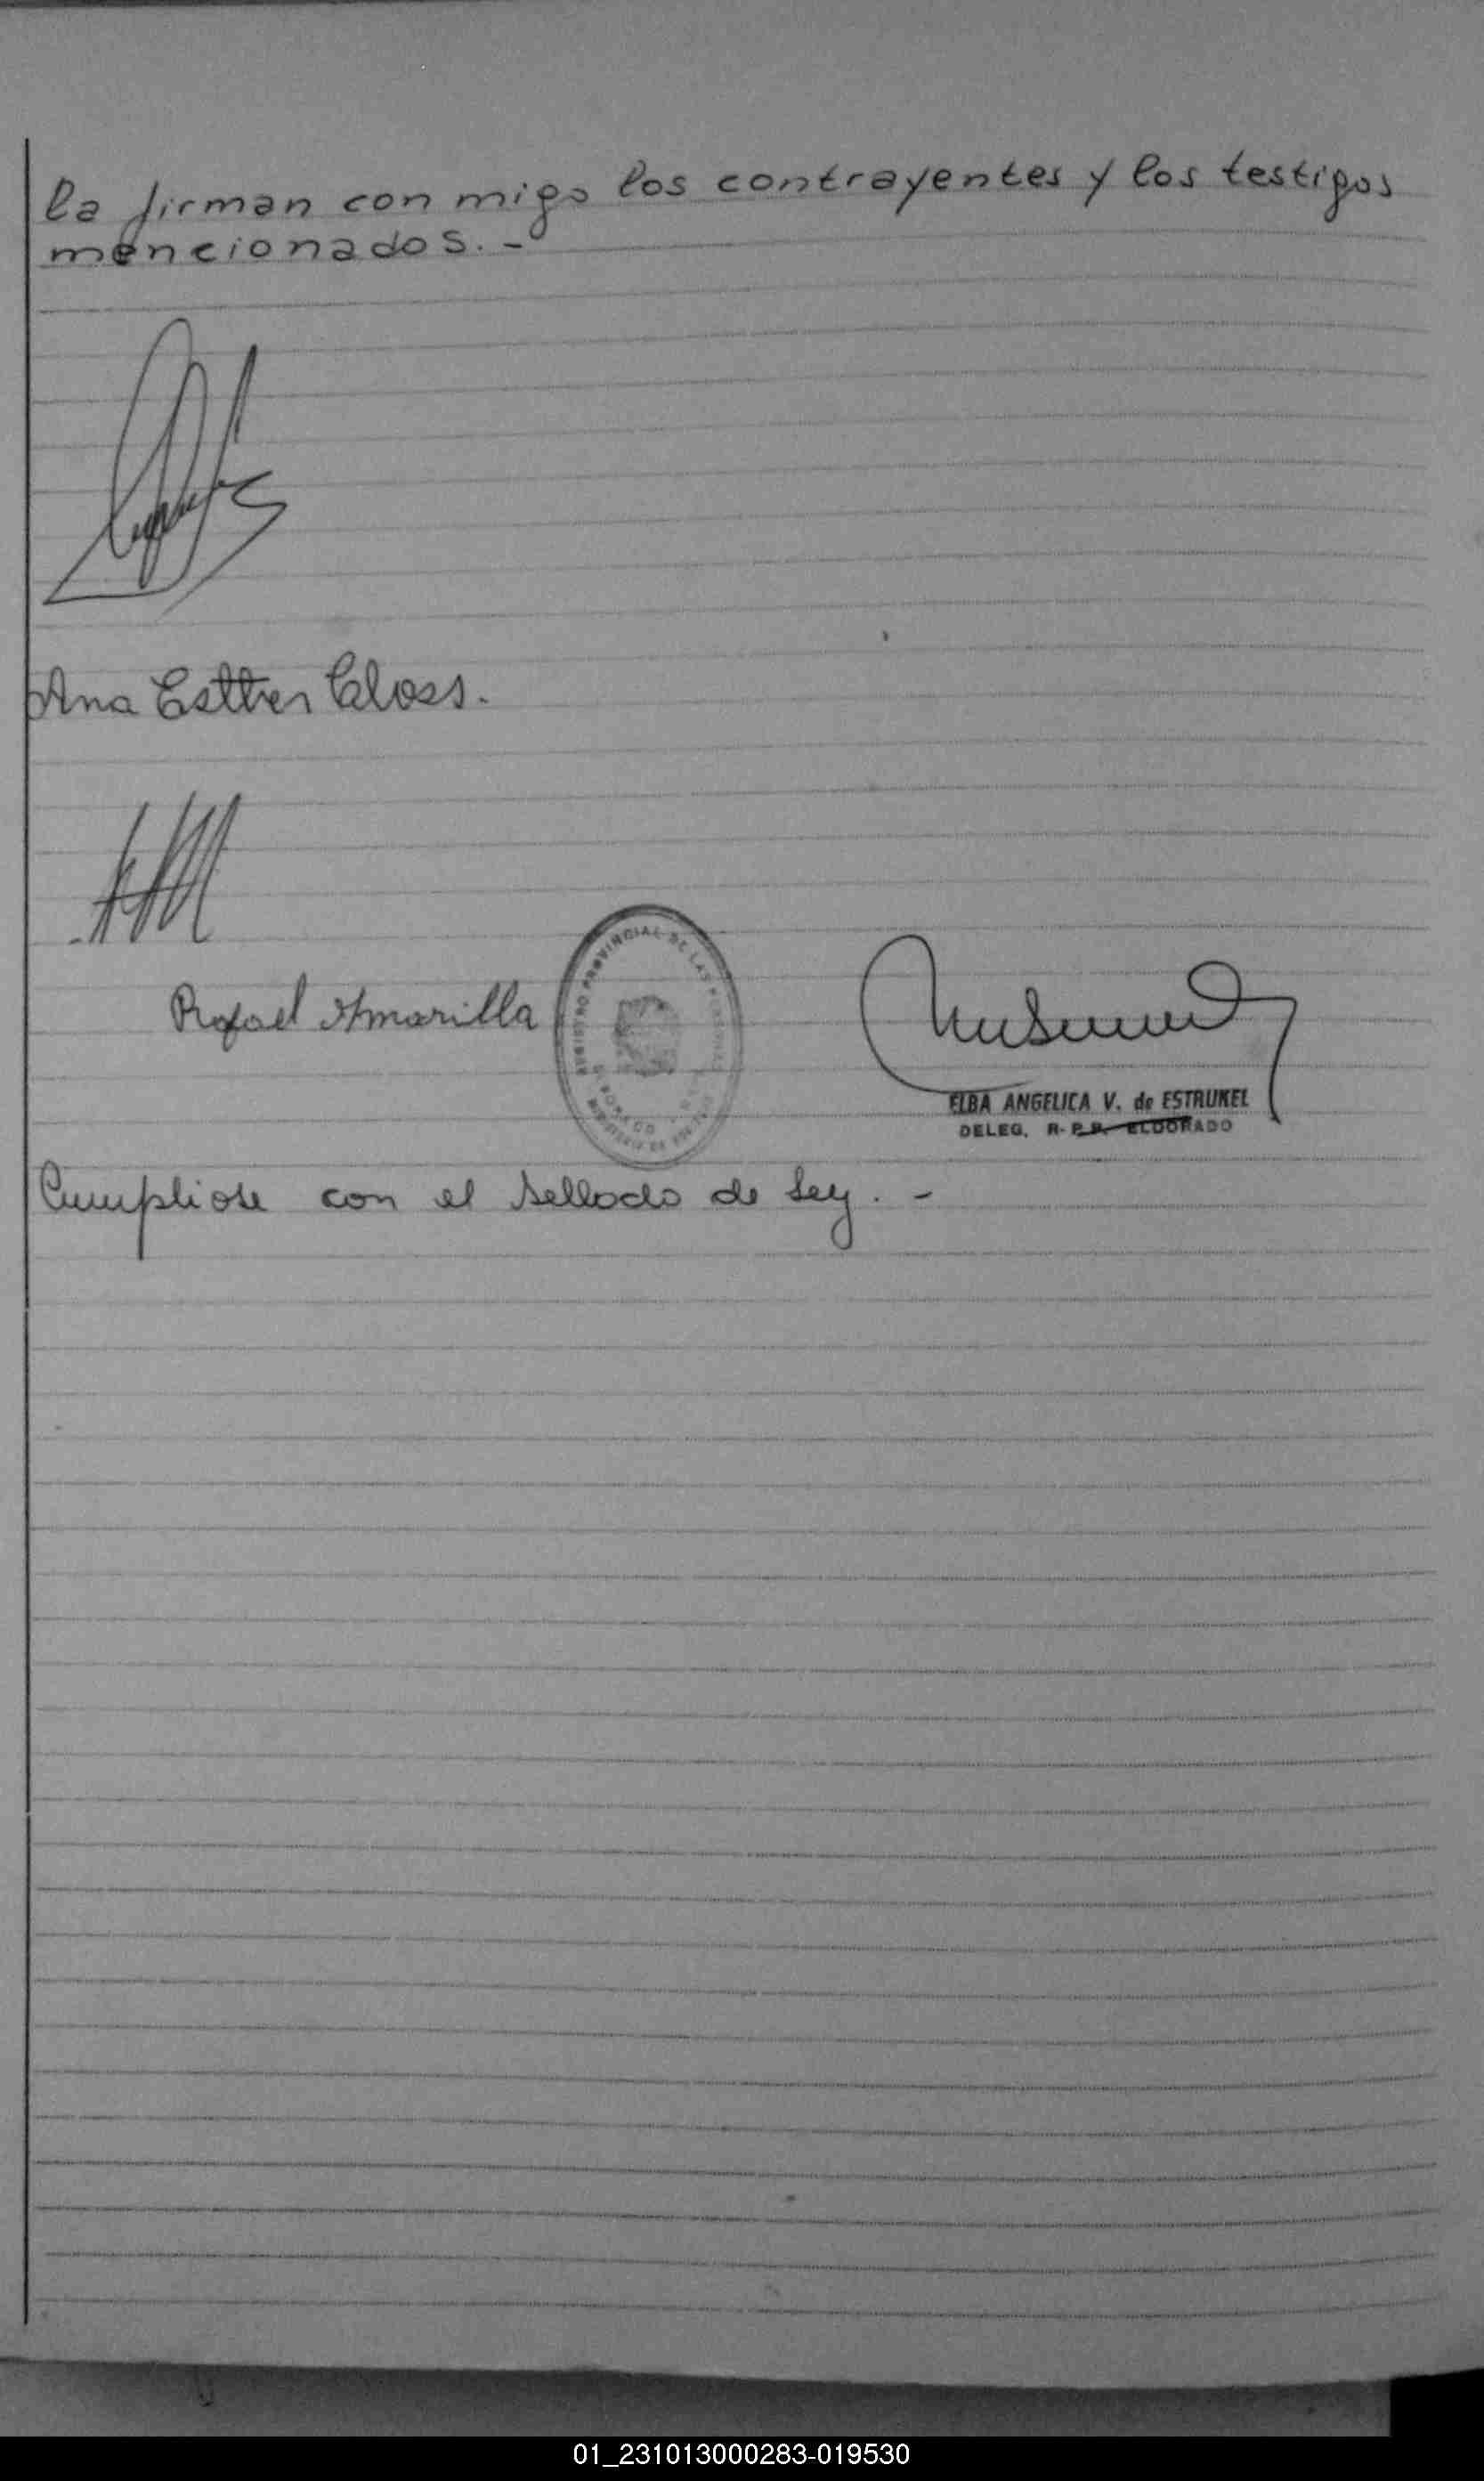 la firman con migo los contrayentes y los testigos
mencionados. -
Ana Esther Closs.
Rafael Amarilla
REGISTRO PROVINCIAL DE LAS PERSONAS
ELDORADO
MINISTERIO DE
ELBA ANGELICA V. de ESTRUKEL
DELEG. R. P. P. ELDORADO
Cumpliose con el sellado de Ley. -
01_231013000283-019530